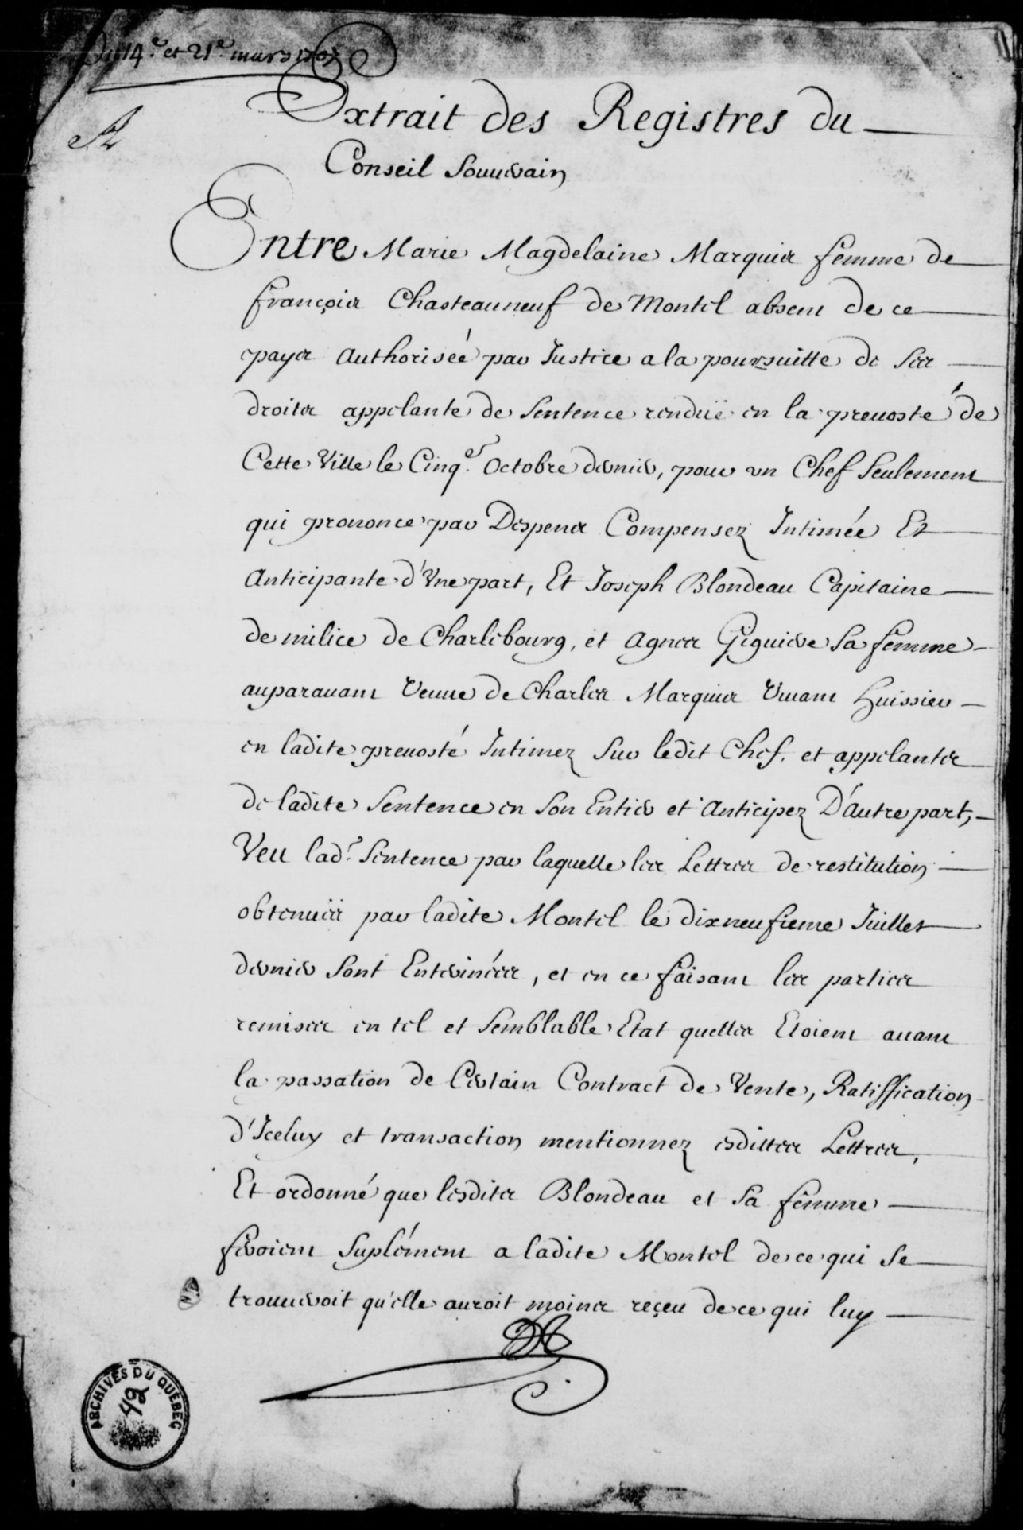 Du 14.e et 21.e mars 1707
Extrait des Registres du
Conseil Souuerain
Entre Marie Magdelaine Marquis femme de
françois Chasteauneuf de Montel absent de ce
pays Authorisée par Justice a la poursuitte de Ses
droits appelante de Sentence renduë en la preuosté de
Cette Ville le Cinq.e Octobre dernier, pour vn Chef Seulement
qui prononce par Despens Compensez Intimée Et
Anticipante d'Vne part, Et Joseph Blondeau Capitaine
de milice de Charlebourg, et Agnes Giguiere Sa femme
auparauant Veuue de Charles Marquis Viuant huissier
en ladite preuosté Intimez Sur ledit Chef. et appelantes
de ladite Sentence en Son Entier et Anticipez D'Autre part,
Veu lad.e Sentence par laquelle les Lettres de restitution
obtenuës par ladite Montel le dixneufieme Juillet
dernier Sont Enterinées, et en ce faisant les parties
remises en tel et Semblable Etat quelles Etoient auant
la passation de Certain Contract de Vente, Ratiffication
d'Iceluy et transaction mentionnez esdittes Lettres,
Et ordonné que lesdits Blondeau et Sa femme
feroient Suplément a ladite Montel de ce qui Se
trouueroit qu'elle auroit moins reçeu de ce qui luy
ARCHIVES DU QUÉBEC